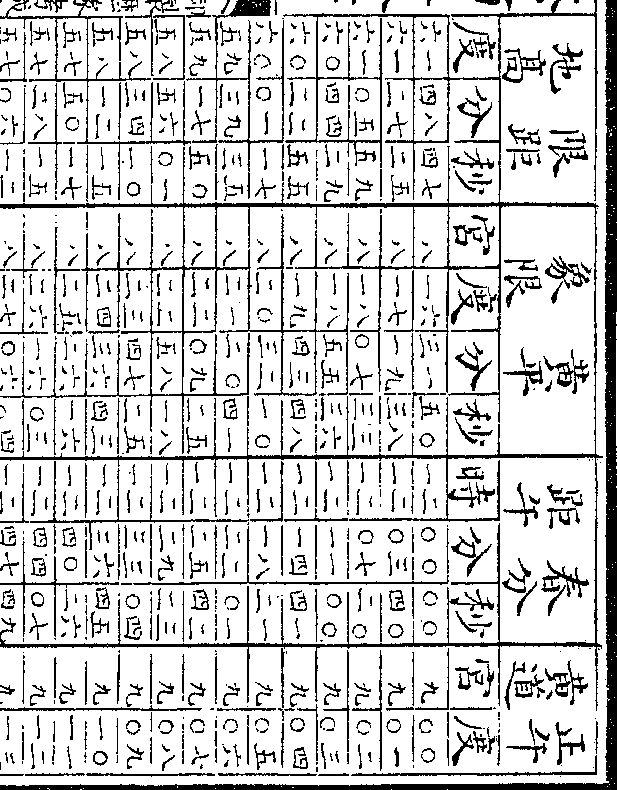 正午黃道 春分距午 黃平象限 限距地高
宮 度 時 分 秒 宮 度 分 秒 度 分 秒
九 〇〇 一二 〇〇 〇〇 八 一六 三一 五〇 六一 四八 四七
九 〇一 一二 〇三 四〇 八 一七 一九 三八 六一 二七 二五
九 〇二 一二 〇七 二〇 八 一八 〇七 三三 六一 〇五 五九
九 〇三 一二 一一 〇〇 八 一八 五五 三六 六〇 四四 二九
九 〇四 一二 一四 四一 八 一九 四三 四八 六〇 二二 五五
九 〇五 一二 一八 二一 八 二〇 三二 一〇 六〇 〇一 一七
九 〇六 一二 二二 〇一 八 二一 二〇 四一 五九 三九 三五
九 〇七 一二 二五 四二 八 二二 〇九 二五 五九 一七 五〇
九 〇八 一二 二九 二三 八 二二 五八 一八 五八 五六 〇一
九 〇九 一二 三三 〇四 八 二三 四七 二五 五八 三四 一〇
九 一〇 一二 三六 四五 八 二四 三六 四三 五八 一二 一五
九 一一 一二 四〇 二六 八 二五 二六 一六 五七 五〇 一七
九 一二 一二 四四 〇七 八 二六 一六 〇三 五七 二八 一五
九 一三 一二 四七 四九 八 二七 〇六 〇四 五七 〇六 一二